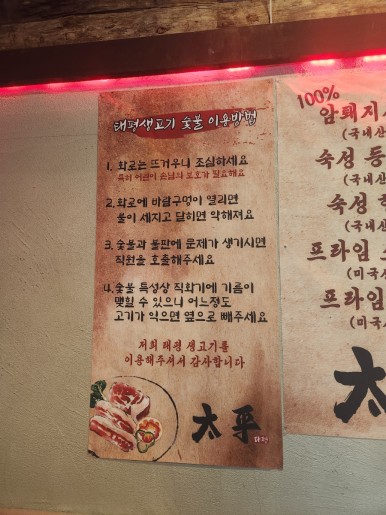 태평생고기 숯불 이용방법
1. 화로는 뜨거우니 조심하세요
특히 어린이 손님의 보호가 필요해요
2. 화로에 바람구멍이 열리면
불이 세지고 닫히면 약해져요
3. 숯불과 불판에 문제가 생기시면
직원을 호출해주세요
4. 숯불 특성상 직화기에 기름이
맺힐 수 있으니 어느정도
고기가 익으면 옆으로 빼주세요
저희 태평 생고기를
이용해주셔서 감사합니다
太平
태평
100%
암퇘지
(국내산
숙성 등
(국내산
숙성
(국내산
프라임
(미국산
프라임
(미국산
太